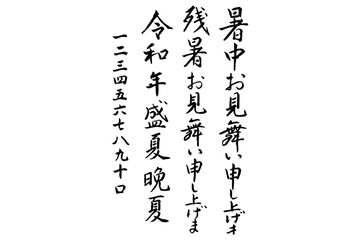 暑中お見舞い申し上げま
残暑お見舞い申し上げま
令和年盛夏晩夏
一二三四五六七八九十口